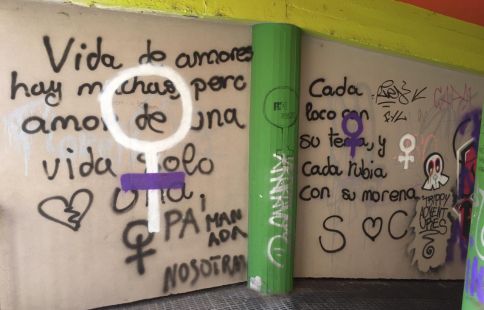 Vida de amores
hay muchas, pero
amor de una
vida solo
una,
PA! MAN
ADA
NOSOTRAS
Cada
loco con
su tema, y
cada rubia
con su morena
S ♡ C
TRIPPY
ADVENT
URES